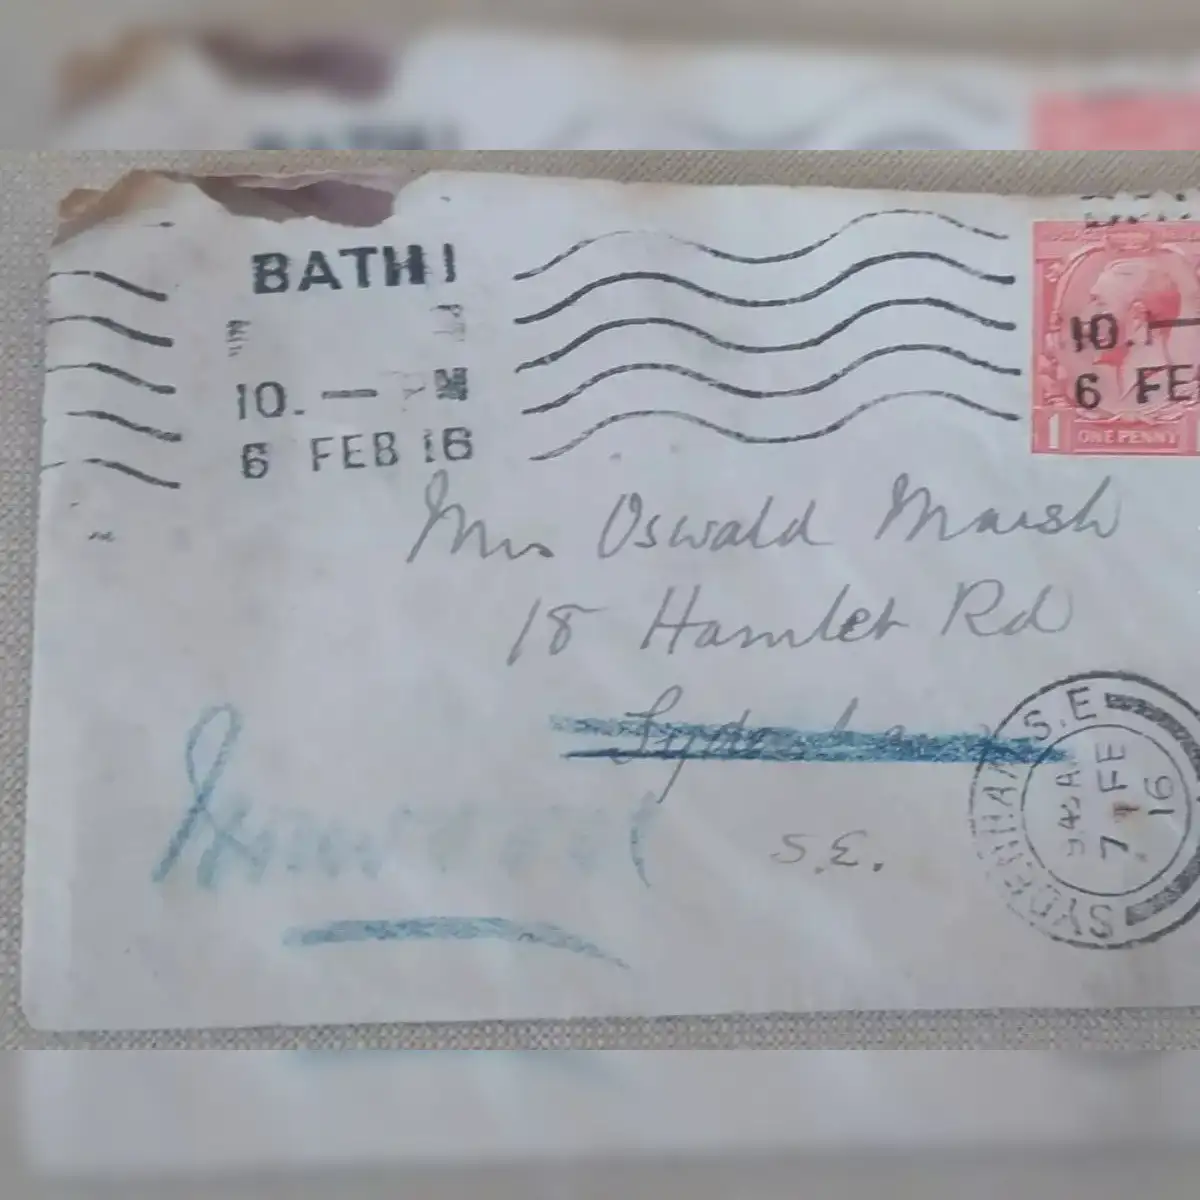 BATH 1
10. — M
6 FEB 16
10.
6 FEB
1 ONE PENNY
Mrs Oswald Marsh
18 Hamlet Rd
Sydenham
S.E.
SYDENHAM S.E
9 45 A
7 FE
16